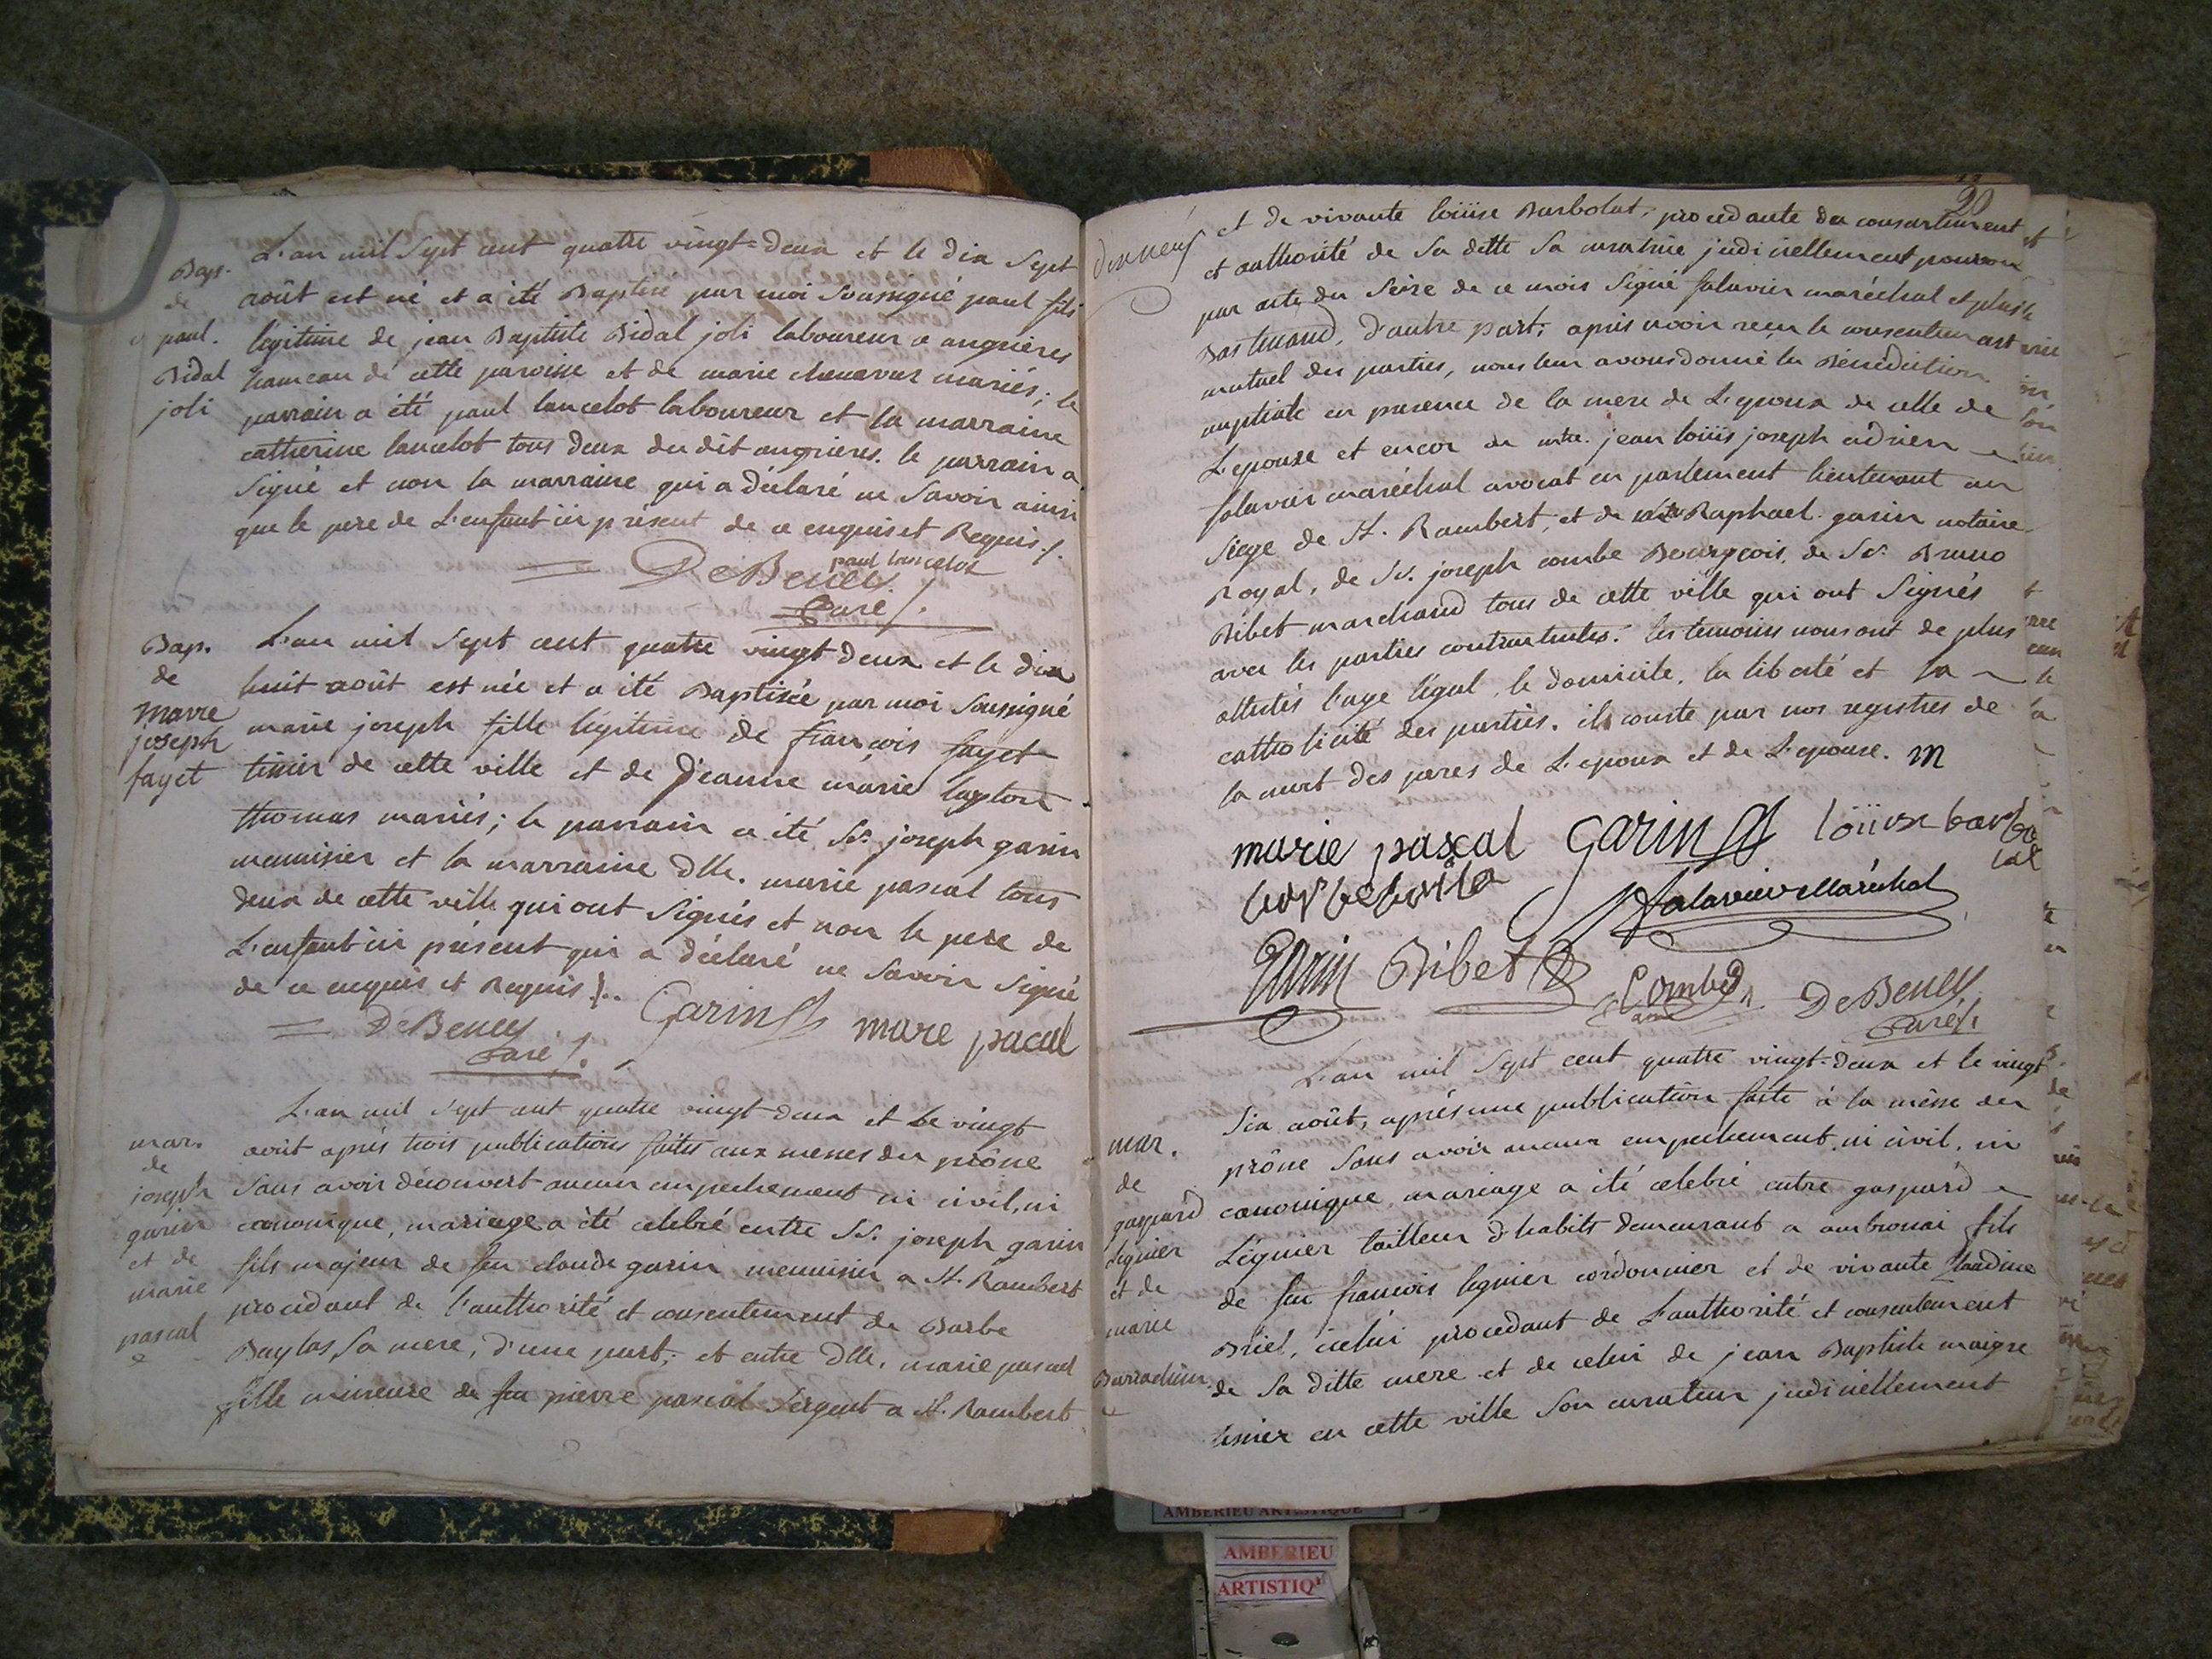 Bap.
de
paul.
Bidal
joli
L'an mil Sept cent quatre vingt=deux et le dix Sept
août est né et a été Baptisé par moi Soussigné paul fils
légitime de jean Baptiste Bidal joli laboureur a angrieres
hameau de cette paroisse et de marie chenavas mariés; le
parrain a été paul lancelot laboureur et la marraine
catherine lancelot tous deux du dit angrieres. le parrain a
Signé et non la marraine qui a déclaré ne Savoir ainsi
que le pere de L'enfant ici présent de ce enquis et Requis /.
paul lancelot
= De Beney
Curé /.
Bap.
de
marie
joseph
fayet
L'an mil Sept cent quatre vingt deux et le dix
huit août est née et a été Baptisée par moi Soussigné
marie joseph fille légitime de françois fayet
tissier de cette ville et de Jeanne marie
thomas mariés; le parrain a été Sr. joseph garin
menuisier et la marraine Dlle. marie pascal tous
deux de cette ville qui ont Signés et non le pere de
L'enfant ici présent qui a déclaré ne Savoir Signé
de ce enquis et Requis /..
= De Beney
Curé /.
Garin
mare pacal
mar.
de
joseph
garin
et de
marie
pascal
L'an mil Sept cent quatre vingt-deux et le vingt
août après trois publications faites aux messes du prône
Sans avoir découvert aucun empechement ni civil, ni
canonique, mariage a été celebré entre Sr. joseph garin
fils majeur de feu claude garin menuisier a St. Rambert
procedant de l'authorité et consentement de Barbe
Baylas, Sa mere, d'une part; et entre Dlle. marie pascal
fille mineure de feu pierre pascal Sergent a St. Rambert
20
et de vivante loüise Barbolat, procedante du consentement
et authorité de Sa dette Sa curatrice judiciellement
par acte du Seize de ce mois Signé Salavier maréchal et plus
Bastinand, d'autre part; après avoir reçu le consentement
mutuel des parties, nous leur avons donné la Bénédiction
nuptiale en presence de la mere de L'epoux de celle de
L'epouse et encor de mtre. jean loüis joseph adrien
Salavier maréchal avocat en parlement lieutenant au
Siege de St. Rambert, et de Raphael garin notaire
Royal, de Sr. joseph combe Bourgeois, de Sr. Bruno
Ribet marchand tous de cette ville qui ont Signés
avec les parties contractantes. les temoins nous ont de plus
attestés l'age légal, le domicile, la liberté et la
catholicité des parties. il conste par nos registres de
la mort des peres de L'epoux et de L'epouse. m
marie pascal Garin loüise barbo
lat
Salavier Maréchal
Garin Ribet
Combe
De Beney
Curé /.
mar.
de
gaspard
Légnier
et de
marie
L'an mil Sept cent quatre vingt-deux et le vingt
Six août, après une publication faite à la messe du
prône Sans avoir aucun empechement, ni civil, ni
canonique, mariage a été celebré entre gaspard
Légnier tailleur d'habits demeurant a ambronai fils
de feu francois legnier cordonnier et de vivante Claudine
Briel, icelui procedant de L'authorité et consentement
de Sa ditte mere et de celui de jean Baptiste maigre
tissier en cette ville Son curateur judiciellement
AMBERIEU ARTISTIQUE
AMBERIEU
ARTISTIQ